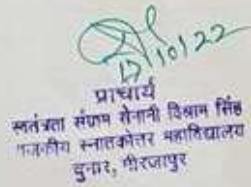 19/10/22
प्राचार्य
स्वतंत्रता संग्राम सेनानी विश्राम सिंह
राजकीय स्नातकोत्तर महाविद्यालय
चुनार, मीरजापुर